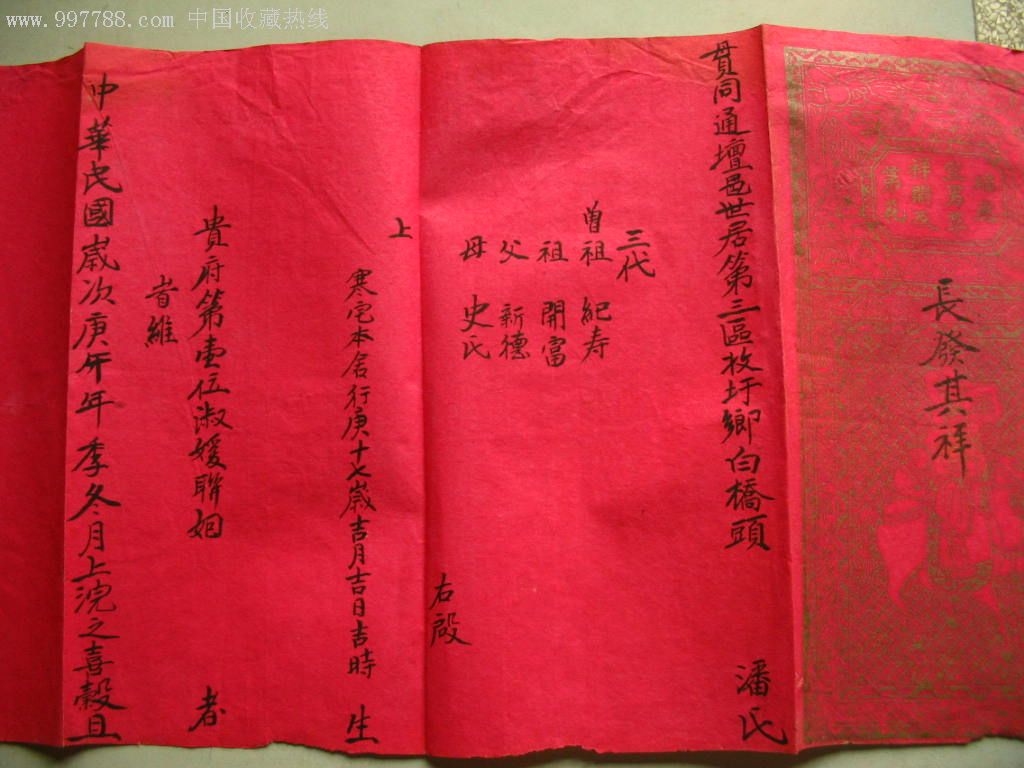 www.997788.com 中国收藏热线
長發其祥
貫同通壇邑世居第三區枚圩鄉白橋頭 潘氏
三代
曾祖 紀寿
祖 開富
父 新德
母 史氏
右啟
上
寒宅本名行庚十七歲吉月吉日吉時 生
貴府第壹位淑媛聯姻 者
旹維
中華民國歲次庚午年季冬月上浣之喜穀旦